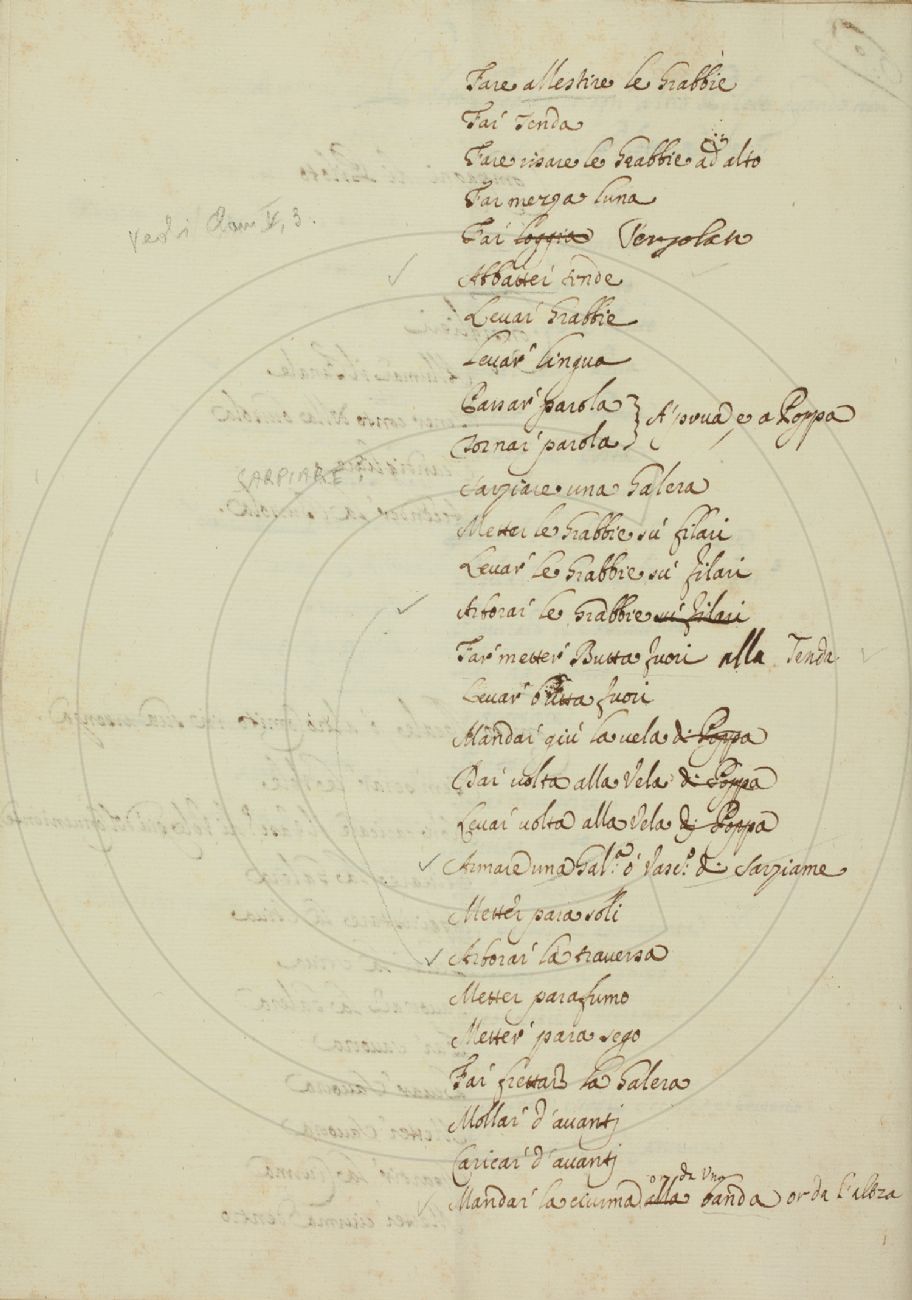 Fare allestire le Grabbie
Far Tenda
Fare issare le Grabbie ad alto
Far mezza luna
Far loggia
Abbatter tende
Levar Grabbie
Levar lingua
Passar parola
A' prua, e a Poppa
Tornar parola
SARPIARE
Sarpiare una Galera
Metter le Grabbie sú filari
Levar le Grabbie sú filari
Arborar le Grabbie sú filari
Far metter Butta fuori alla Tenda
Levar butta fuori
Mandar giú la vela di Poppa
Dar volta alla Vela di Poppa
Levar volta alla Vela di Poppa
Armare una Gal.ª ó Vasc.º di Sarpiame
Metter para solli
Arborar la traversa
Metter parafumo
Metter para sego
Far frettar la Galera
Mollar d'avantj
Caricar d'avantj
or da una
Mandar la ciurma alla banda or da l'altra